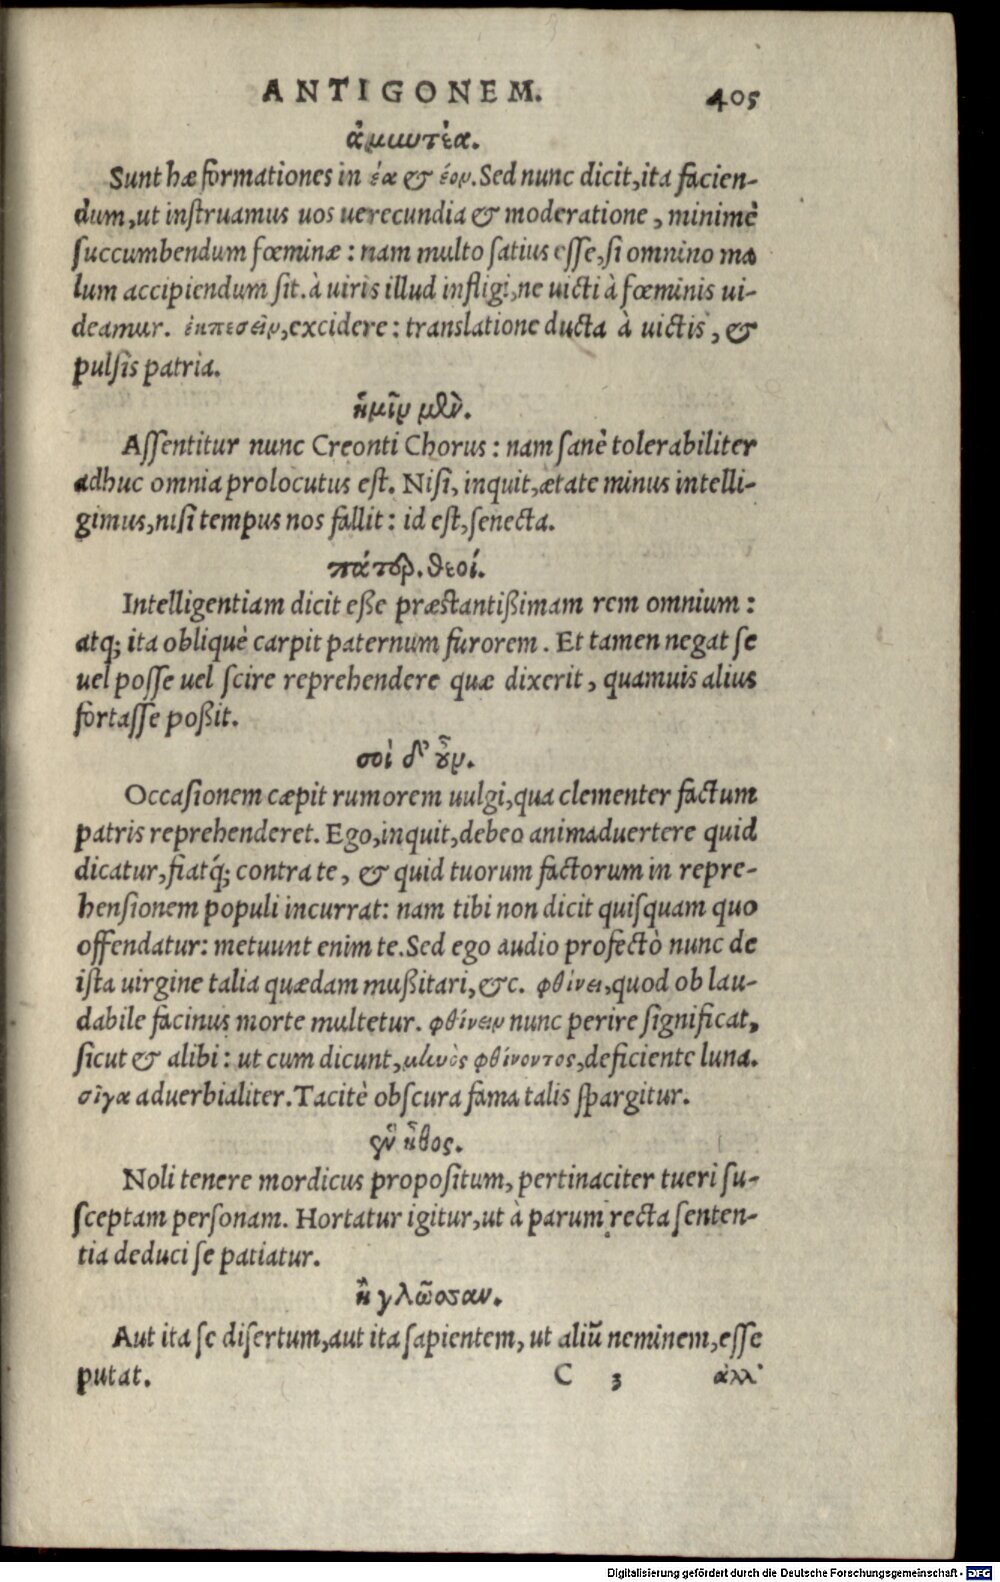 ANTIGONEM. 405
ἀμυντέα.
Sunt hæ formationes in έα & έον. Sed nunc dicit, ita facien-
dum, ut instruamus uos uerecundia & moderatione, minimè
succumbendum fœminæ: nam multo satius esse, si omnino ma
lum accipiendum sit. à uiris illud infligi, ne uicti à fœminis ui-
deamur. ἐκπεσεῖν, excidere: translatione ducta à uictis, &
pulsis patria.
ἡμῖν μὲν.
Assentitur nunc Creonti Chorus: nam sanè tolerabiliter
adhuc omnia prolocutus est. Nisi, inquit, ætate minus intelli-
gimus, nisi tempus nos fallit: id est, senecta.
πάτερ. θεοί.
Intelligentiam dicit eße præstantißimam rem omnium:
atq; ita obliquè carpit paternum furorem. Et tamen negat se
uel posse uel scire reprehendere quæ dixerit, quamuis alius
fortasse poßit.
σοὶ δ' οὖν.
Occasionem cæpit rumorem uulgi, qua clementer factum
patris reprehenderet. Ego, inquit, debeo animaduertere quid
dicatur, fiatq́; contra te, & quid tuorum factorum in repre-
hensionem populi incurrat: nam tibi non dicit quisquam quo
offendatur: metuunt enim te. Sed ego audio profectò nunc de
ista uirgine talia quædam mußitari, &c. φθίνει, quod ob lau-
dabile facinus morte multetur. φθίνειν nunc perire significat,
sicut & alibi: ut cum dicunt, μηνὸς φθίνοντος, deficiente luna.
σῖγα aduerbialiter. Tacitè obscura fama talis spargitur.
ἓν ἦθος.
Noli tenere mordicus propositum, pertinaciter tueri su-
sceptam personam. Hortatur igitur, ut à parum recta senten-
tia deduci se patiatur.
ἢ γλῶσσαν.
Aut ita se disertum, aut ita sapientem, ut aliũ neminem, esse
putat. C 3 ἀλλ'
Digitalisierung gefördert durch die Deutsche Forschungsgemeinschaft - DFG